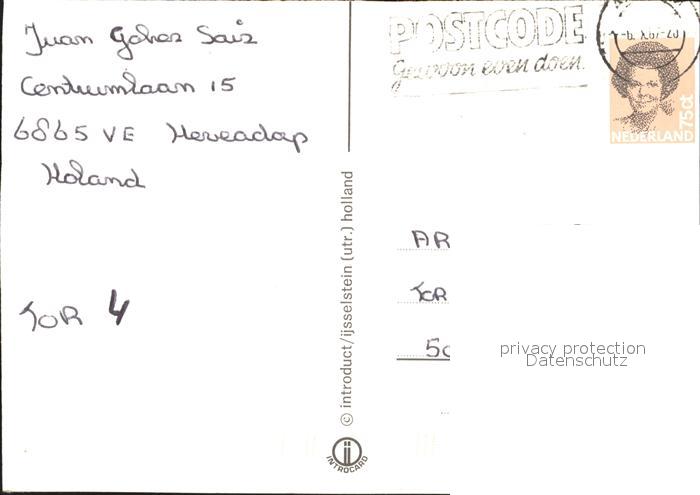 Juan Gohez Saiz
Centrumlaan 15
6865 VE Heveadorp
Holand
TOR 4
POSTCODE
Gewoon even doen.
NEDERLAND
75ct
© introduct/ijsselstein (utr.) holland
INTROCARD
AR
TOR
50
privacy protection
Datenschutz